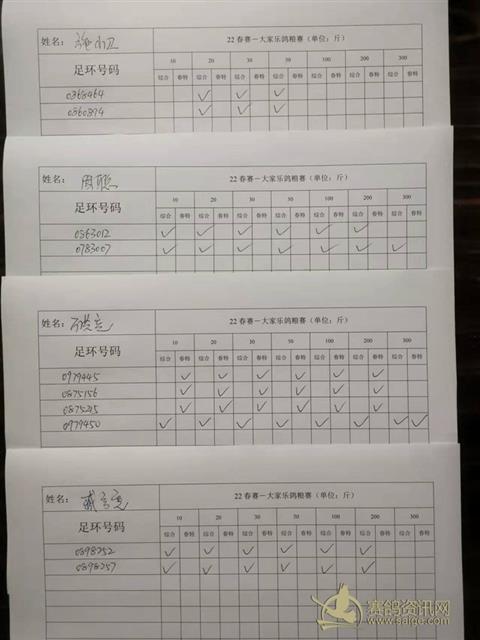 姓名： 22 春赛－大家乐鸽粮赛（单位：斤）
足环号码 10 20 30 50 100 200 300
综合 春特 综合 春特 综合 春特 综合 春特 综合 春特 综合 春特 综合 春特
0368464 ✓ ✓ ✓
0360394 ✓ ✓ ✓
姓名： 周聪 22 春赛－大家乐鸽粮赛（单位：斤）
足环号码 10 20 30 50 100 200 300
综合 春特 综合 春特 综合 春特 综合 春特 综合 春特 综合 春特 综合 春特
0363012 ✓ ✓ ✓ ✓ ✓ ✓
0783007 ✓ ✓ ✓ ✓ ✓ ✓ ✓
姓名： 22 春赛－大家乐鸽粮赛（单位：斤）
足环号码 10 20 30 50 100 200 300
综合 春特 综合 春特 综合 春特 综合 春特 综合 春特 综合 春特 综合 春特
0979445 ✓ ✓ ✓ ✓ ✓ ✓
0875156 ✓ ✓ ✓ ✓ ✓ ✓
0875215 ✓ ✓ ✓ ✓ ✓ ✓
0979450 ✓ ✓ ✓ ✓ ✓ ✓ ✓ ✓
姓名： 22 春赛－大家乐鸽粮赛（单位：斤）
足环号码 10 20 30 50 100 200 300
综合 春特 综合 春特 综合 春特 综合 春特 综合 春特 综合 春特 综合 春特
0898252 ✓ ✓ ✓ ✓ ✓ ✓
0898257 ✓ ✓ ✓ ✓ ✓ ✓
赛鸽资讯网
www.saige.com